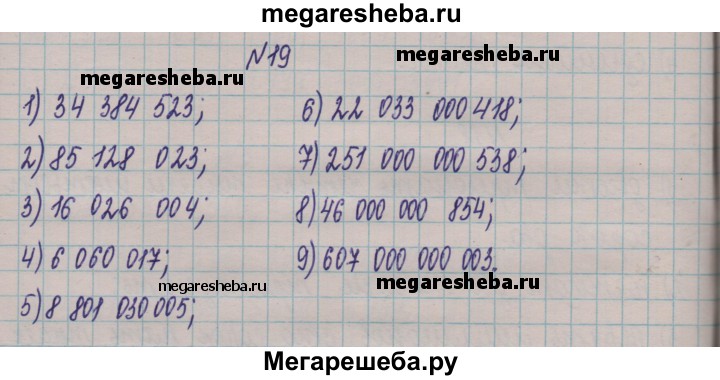 megaresheba.ru
N19
megaresheba.ru
megaresheba.ru
1) 34 384 523;
2) 85 128 023;
3) 16 026 004;
4) 6 060 017;
5) 8 801 030 005;
6) 22 033 000 418;
7) 251 000 000 538;
8) 46 000 000 854;
9) 607 000 000 003.
megaresheba.ru
megaresheba.ru
Мегарешеба.ру